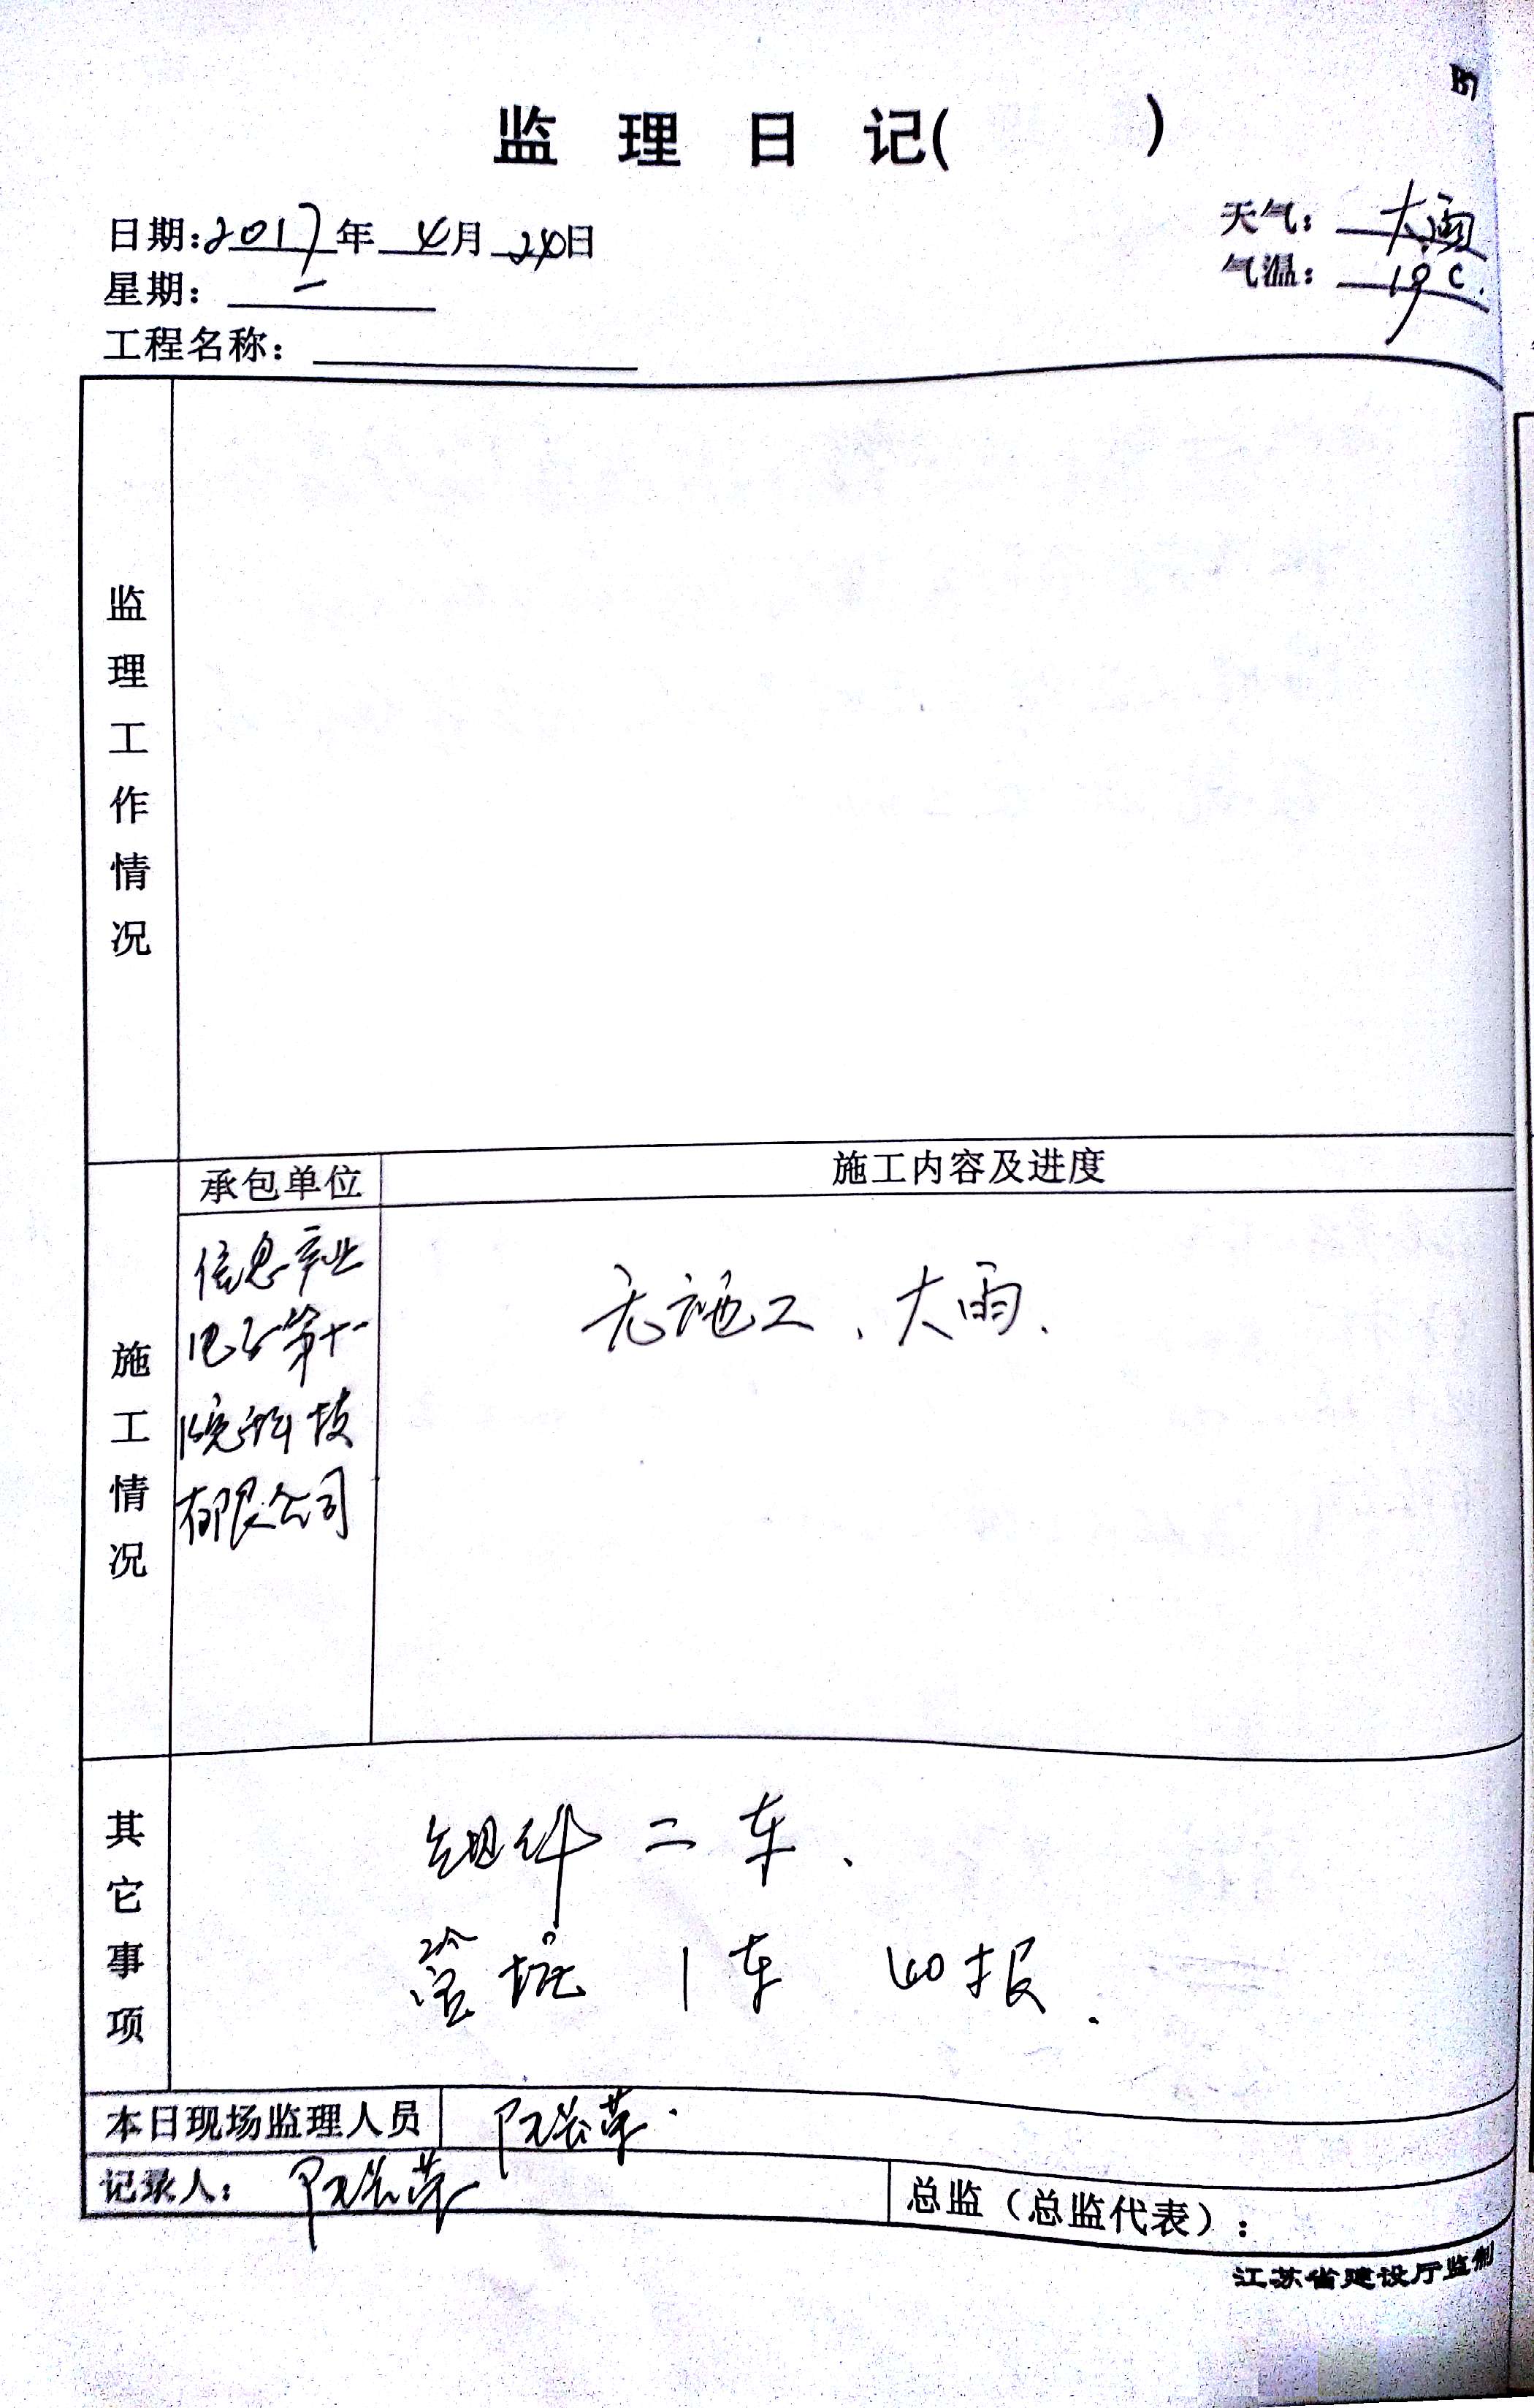 B7
监理日记( )
日期:2017年 4月 24日
天气: 大雨
星期: 一
气温: 19℃.
工程名称:
监理工作情况
承包单位
施工内容及进度
施工情况
信息产业
电子第十一
院科技
有限公司
无施工、大雨.
其它事项
组件 二 车、
管桩 1 车 40根.
本日现场监理人员
记录人:
总监（总监代表）:
江苏省建设厅监制